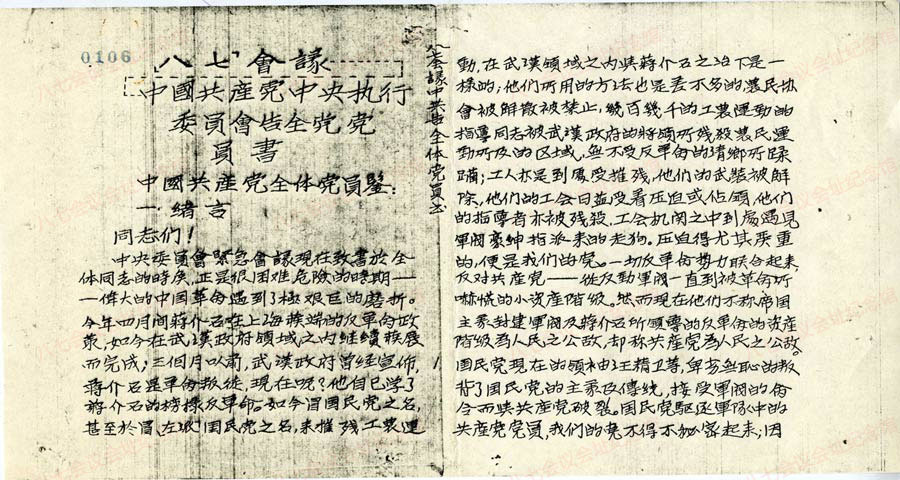 0106
八七會議
中國共產党中央执行
委員會告全党党
員書
中國共產党全体党員鑒：
一 緒言
同志们！
中央委員會緊急會議現在致書於全
体同志的時候，正是很困难危險的時期——
一偉大的中国革命遇到了極艰巨的磨折。
今年四月间蔣介石在上海發端的反革命政
策，如今在武漢政府領域之内继續發展
而完成；三個月以前，武漢政府曾经宣佈，
蔣介石是革命叛徒，現在呢？他自已学了
蔣介石的榜樣反革命。如今冒国民党之名，
甚至於冒「左派」国民党之名，来摧残工農運
八七會議中共告全体党員书
動，在武漢領域之内與蔣介石之治下是一
樣的；他们所用的方法也是差不多的，農民协
會被解散被禁止，幾百幾千的工農運動的
指導同志被武漢政府的將領所残殺，農民運
動所及的区域，無不受反革命的清鄉所蹂
躪；工人亦是到處受摧残，他们的武裝被解
除，他们的工会日益受着压迫或佔領，他们
的指導者亦被残殺，工会机関之中到處遇見
軍閥豪紳指派来的走狗。压迫得尤其严重
的，便是我们的党。一切反革命势力联合起来，
反对共產党——從反動軍閥一直到被革命所
嚇慌的小资產階级。然而現在他们不称帝国
主義封建軍閥及蔣介石所領導的反革命的资產
階级為人民之公敌，却称共產党為人民之公敌。
国民党現在的領袖汪精卫等，卑劣無恥的叛
背了国民党的主義及傳统，接受軍閥的命
令而與共產党破裂。国民党驱逐軍隊中的
共產党党員，我们的党不得不秘密起来；因